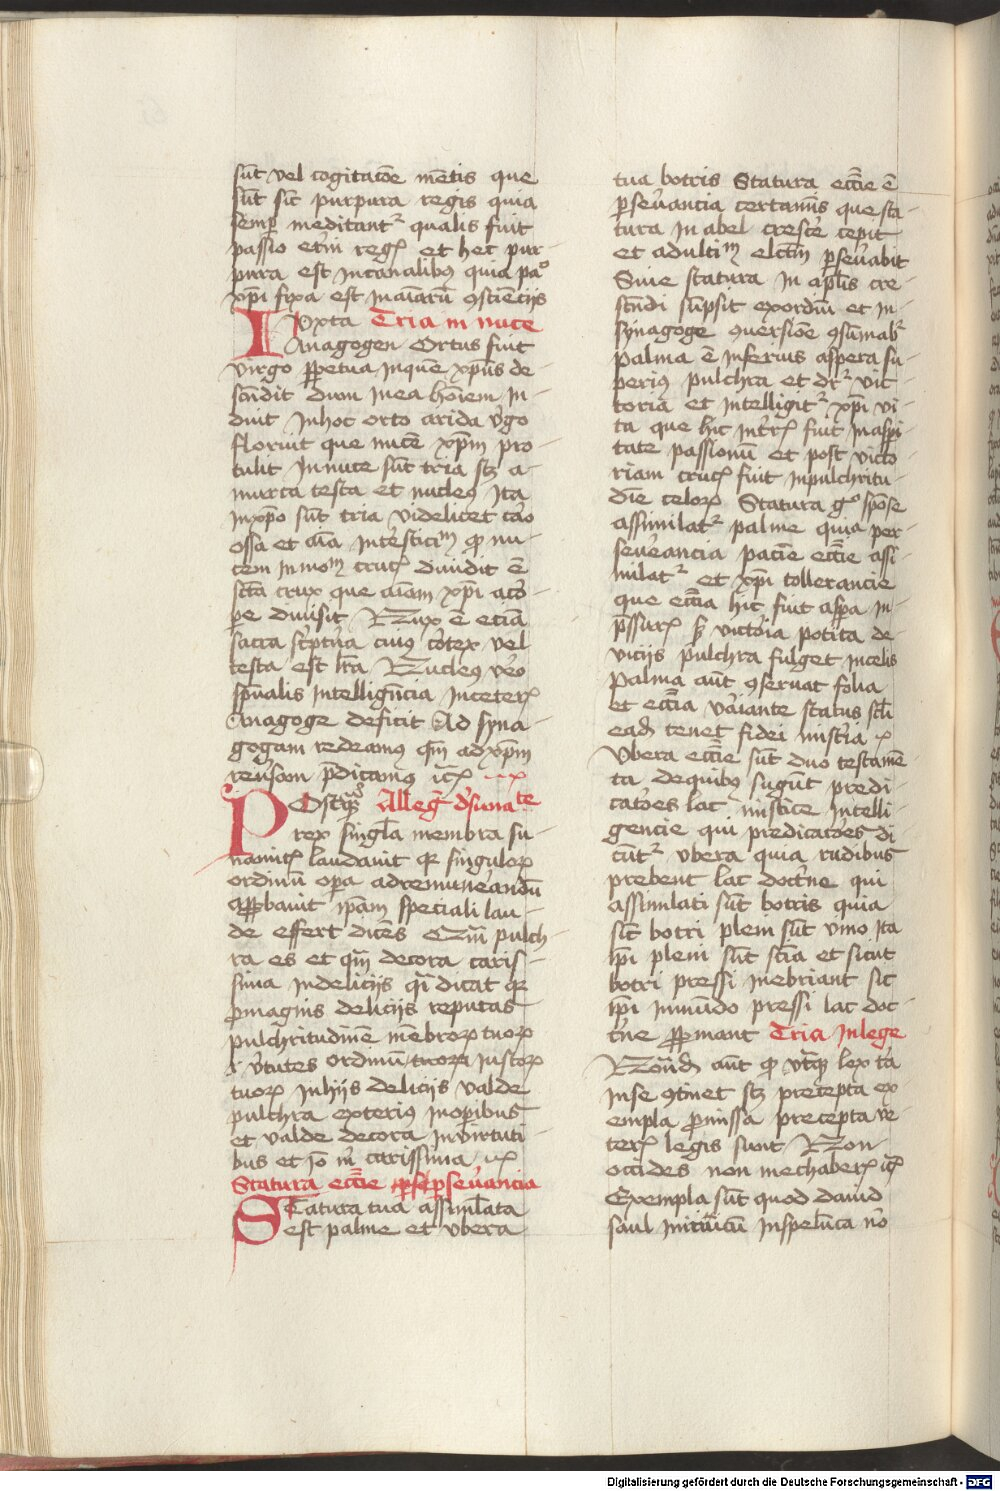 sūt vel cogitacōe mētis que
sūt sic̄ purpura regis quia
semp̄ meditant² qualis fuit
passio et̄ni regꝭ et hec pur-
pura est in canalibꝰ quia pa⁰
xp̄i fixa est in aīarū ꝯsciēcijs
Iuxta Tria in nuce
Anagogen Ortus fuit
virgo ꝑpetua in quē xp̄us de-
scēdit dum in ea hōiem in-
duit In hoc orto arida v̓go
floruit que nucē xp̄m pro-
tulit In nuce sūt tria sꝫ a-
murca testa et nucleꝰ Ita
in xp̄o sūt tria videlicet caro
ossa et aīa intesticiᵐ ꝙ nu-
cem in moᵐ crucꝭ diuidit ē
sc̄ta crux que aīam xp̄i a cor-
pe diuisit Nux ē eciā
sacra sc̓ptura cuiꝰ cortex vel
testa est lr̄a Nucleꝰ v̓o
sp̄ualis intelligēcia In ceterꝭ
Anagoge deficit Ad syna-
gogam redeamꝰ qm̄ ad xp̄m
reu̓sam p̄dicamꝰ icꝭ
Postqᷓꝫ Alleg̓ d̓ sunate
rex singl̄a membra su-
namitꝭ laudauit ꝙ singuloꝝ
ordinū oꝑa ad remunerandū
aꝓbauit ip̄am speciali lau-
de effert dicēs Qm̄ pulch
ra es et qm̄ decora caris-
sima in delicijs q̄ dicat ꝙ
ꝓ magnis delicijs reputas
pulchritudinē mēbroꝝ tuoꝝ
i v̓tutes ordinū tuoꝝ iustoꝝ
tuoꝝ In hijs delicijs valde
pulchra exteriꝰ in oꝑibus
et valde decora in virtuti-
bus et iō m̓ carissima
Statura eccīe ꝑseu̓ancia
Statura tua assimil̄ata
est palme et vbera
tua botris Statura eccīe ē
ꝑseu̓ancia certamīs que sta-
tura in abel cresce̓ cepit
et ad ultimᵐ elc̄tm ꝑseu̓abit
Siue statura in apl̄is cre-
scēdi sūpsit exordiū et in
synagoge ꝯuersiōe ꝯsūmab²
Palma ē inferius aspera su-
periꝰ pulchra et dr² vic-
toria et intelligit² xp̄i vi-
ta que hic in t̓rꝭ fuit in aspi-
tate passionū et post victo-
riam crucꝭ fuit in pulchritu-
dīe celoꝝ Statura gᵒ spōse
assimilat² palme quia per-
seuerancia paciē eccīe assi-
milat² et xp̄i tollerancie
que eccīa hic fuit aspa in
p̄ssurꝭ sꝫ victoria potita de
vicijs pulchra fulget in celis
Palma aūt ꝯseruat folia
et eccīa variante status scl̄i
eadē tenet fidei mist̓ia
Vbera eccīe sūt duo testamē
ta de quibꝰ sugūt predi-
catōes lac mistice intelli
gencie qui predicatōes di
cūt² vbera quia rudibus
prebent lac doct̓ne qui
assimilati sūt botris quia
sic̄ botri pleni sūt vino Ita
ip̄i pleni sūt scīa et sicut
botri pressi inebriant sic
ip̄i in mūdo pressi lac doc-
t̓ne ꝓmant Tria in lege
Notād̄ aūt ꝙ vt̓qꝫ lex t̓a
in se ꝯtinet sꝫ precepta ex
empla ꝓmissa precepta ve-
terꝭ legis sunt Non
occides non mechaberꝭ icꝭ
Exempla sūt quod dauid
saul inimicū in spelūca nō